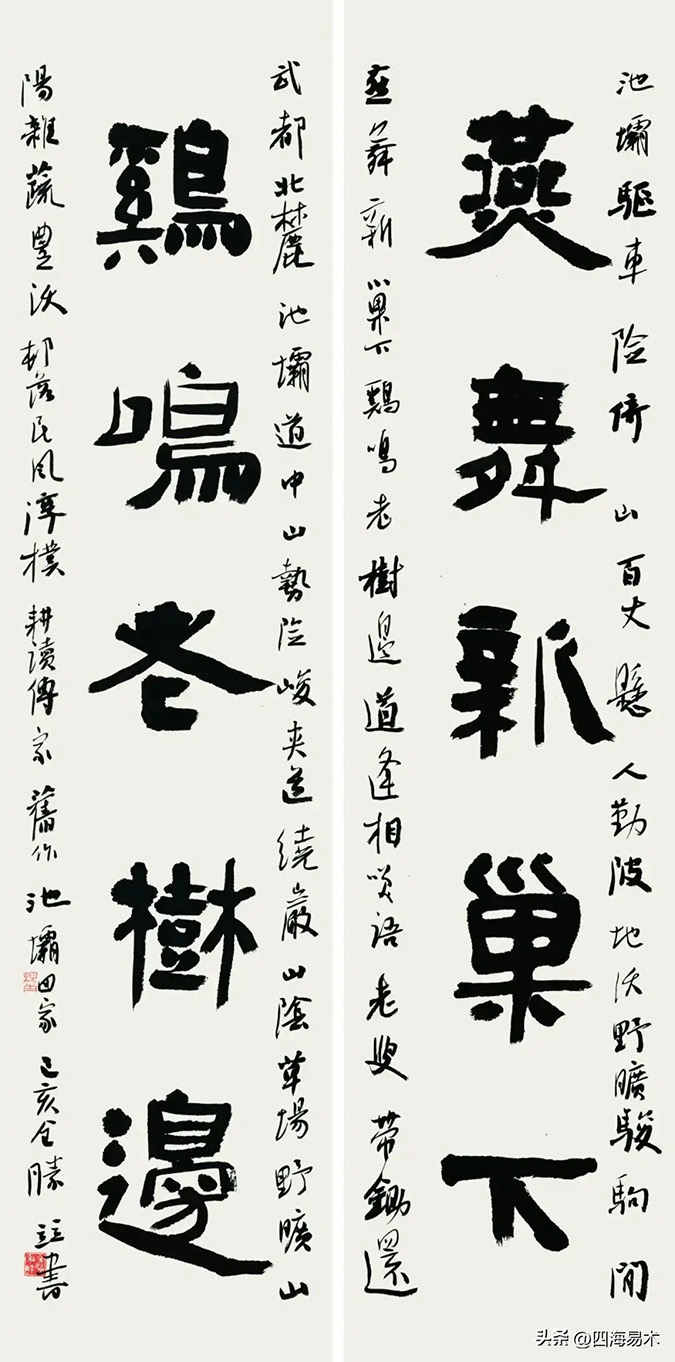 池壩驅車险倚山百丈懸人勤陂地沃野曠駿駒閒
燕舞新巢下
燕舞新巢下鷄鳴老樹邊道逢相笑語老叟帶鋤還
武都北麓池壩道中山勢险峻夹道繞巖山陰草場野曠山
鷄鳴老樹邊
陽雜蔬豊沃邨落民風淳樸耕讀傳家舊作池壩田家己亥全勝書
头条 @四海易木